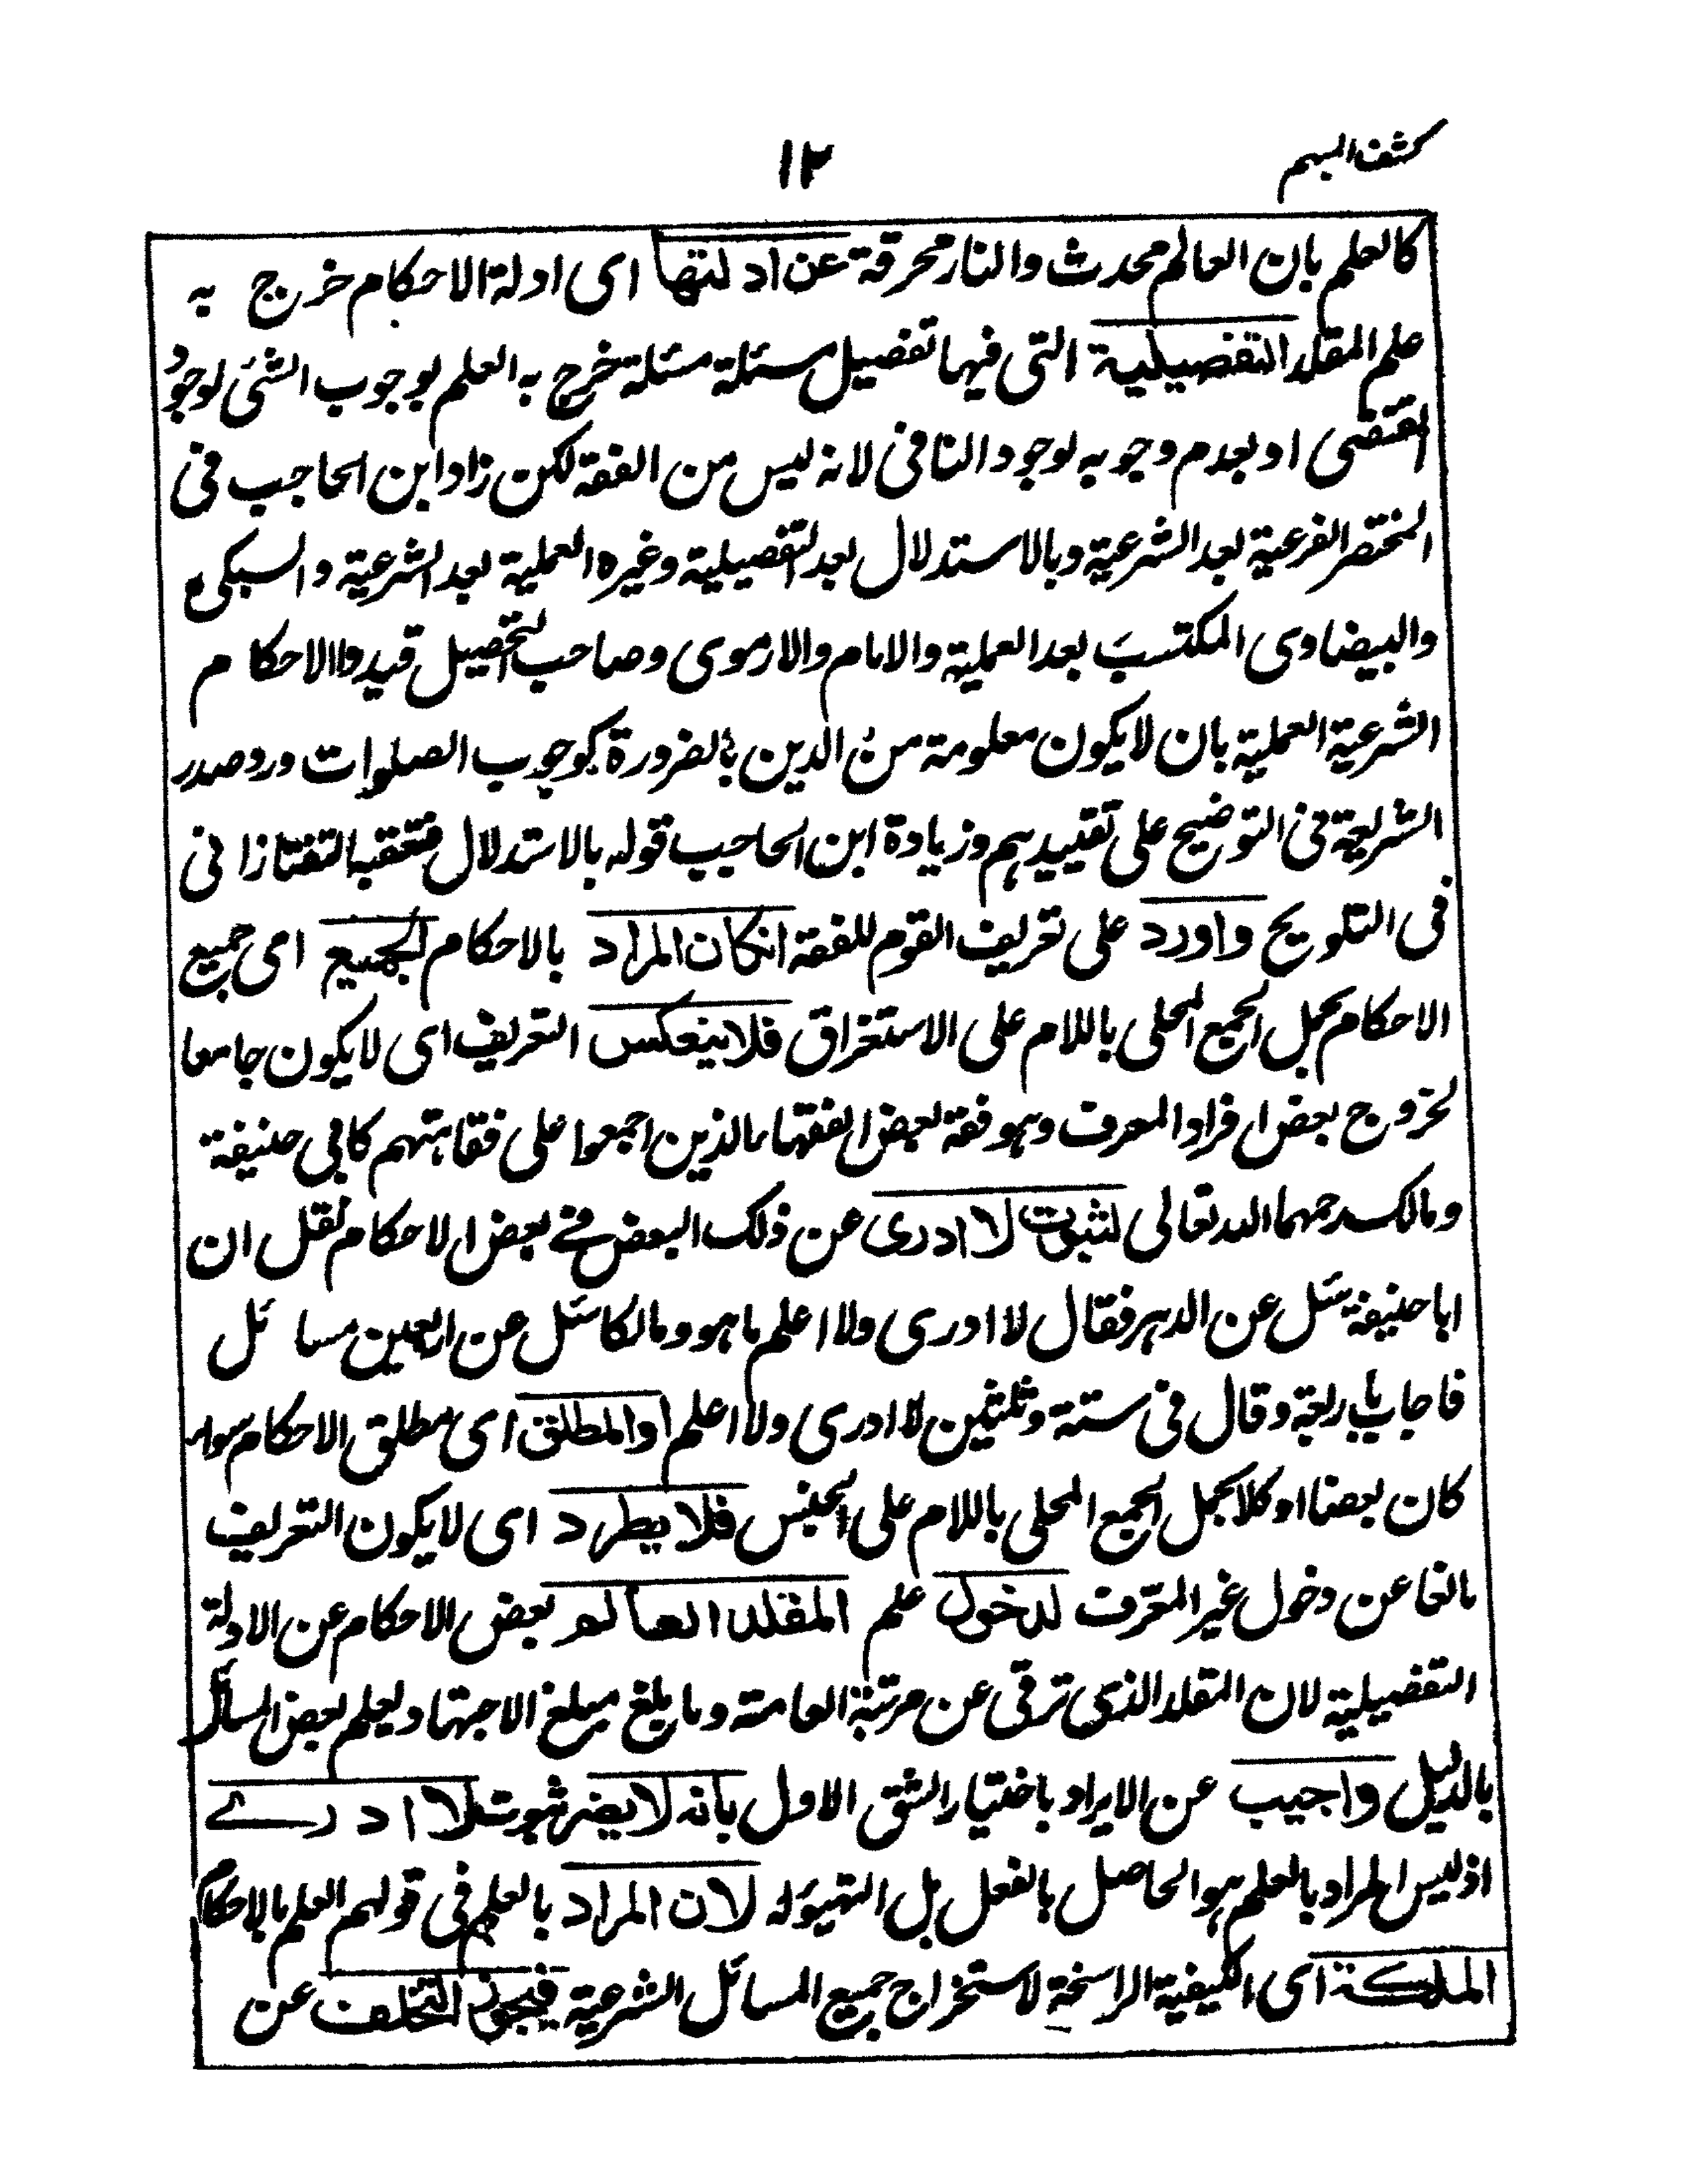 كشف المبهم
١٢
كالعلم بان العالم محدث والنار محرقة عن ادلتها اى ادلة الاحكام خرج به
علم المقلد التفصيلية التى فيها تفصيل مسئلة مسئلة خرج به العلم بوجوب الشئ لوجود
المقتضى او بعدم وجوبه لوجود النافى لانه ليس من الفقة لكن زاد ابن الحاجب فى
المختصر الفرعية بعد الشرعية وبالاستدلال بعد التفصيلية وغيره العملية بعد الشرعية والسبكى
والبيضاوى المكتسب بعد العملية والامام والارموى وصاحب التحصيل قيدوا الاحكام
الشرعية العملية بان لا يكون معلومة من الدين بالضرورة كوجوب الصلوات ورد صدر
الشريعة فى التوضيح على تقييدهم وزيادة ابن الحاجب قوله بالاستدلال فتعقبه التفتازانى
فى التلويح واورد على تعريف القوم للفقة انكان المراد بالاحكام الجميع اى جميع
الاحكام بحمل الجمع المحلى باللام على الاستغراق فلا ينعكس التعريف اى لا يكون جامعا
لخروج بعض افراد المعرف وهو فقة بعض الفقهاء الذين اجمعوا على فقاهتهم كابى حنيفة
ومالك رحمهما الله تعالى لثبوت لا ادرى عن ذلك البعض فى بعض الاحكام نقل ان
ابا حنيفة سئل عن الدهر فقال لا ادرى ولا اعلم ما هو ومالكا سئل عن اربعين مسائل
فاجاب باربعة وقال فى ستة وثلثين لا ادرى ولا اعلم او المطلق اى مطلق الاحكام سواء
كان بعضا او كلا بحمل الجمع المحلى باللام على الجنس فلا يطرد اى لا يكون التعريف
مانعا عن دخول غير المعرف لدخول علم المقلد العالم بعض الاحكام عن الادلة
التفصيلية لان المقلد الذى ترقى عن مرتبة العامة وما بلغ مبلغ الاجتهاد يعلم بعض المسائل
بالدليل واجيب عن الايراد باختيار الشق الاول بانه لا يضر ثبوت لا ادرے
اذ ليس المراد بالعلم هو الحاصل بالفعل بل التهيؤ له لان المراد بالعلم فى قولهم العلم بالاحكام
الملكة اى الكيفية الراسخة لاستخراج جميع المسائل الشرعية فيجوز التخلف عن